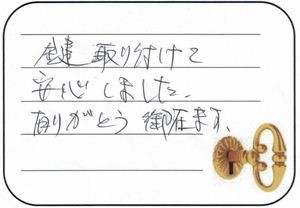 鍵取り付けて
安心しました。
有りがとう御在ます、